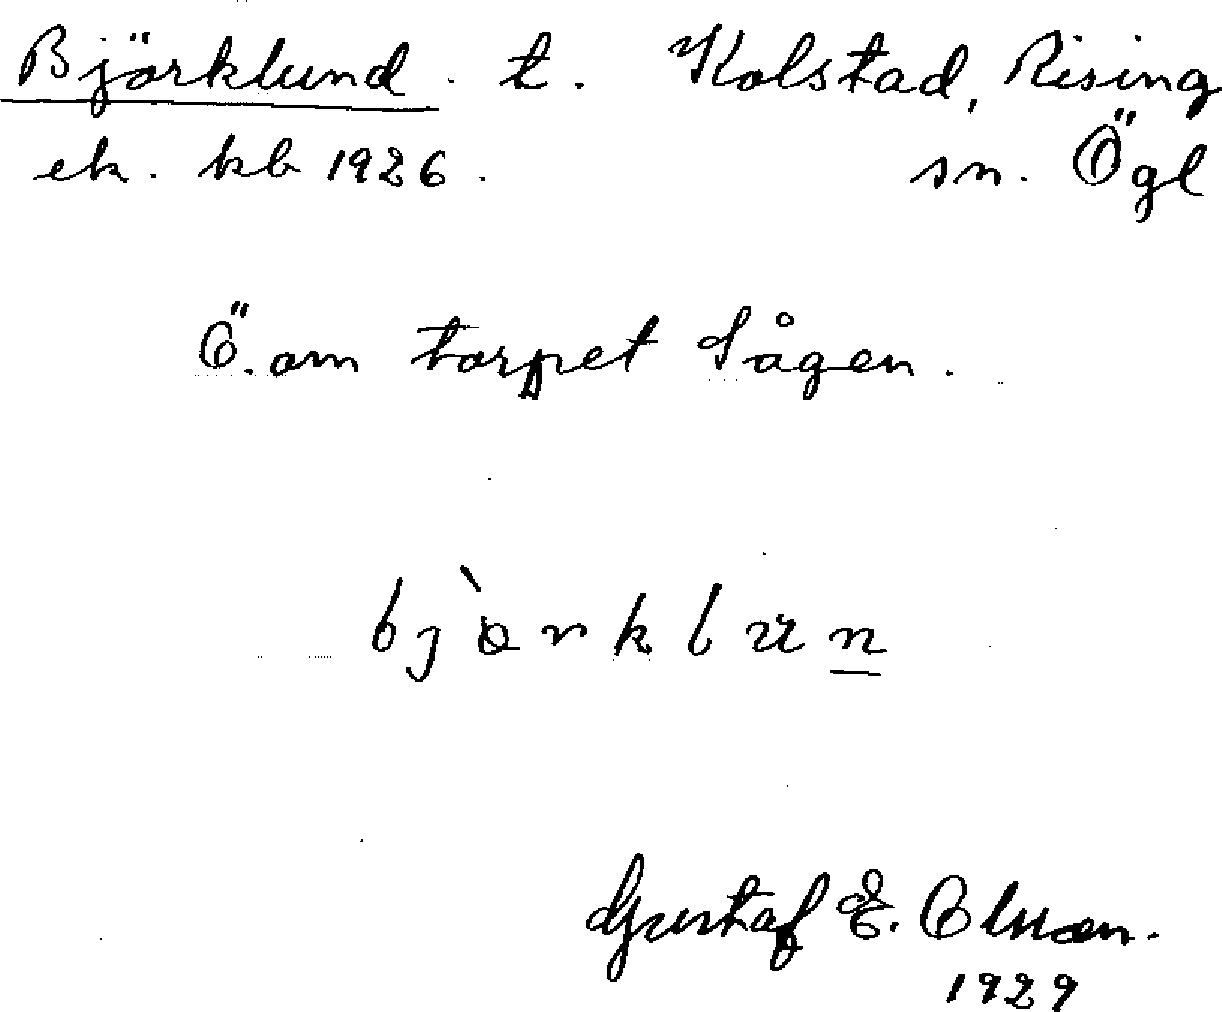 Björklund. t. Kolstad, Rising
ek. kb 1926. sn. Ögl
Ö. om torpet Sågen.
bjὰrklun
Gustaf E. Olsson.
1929